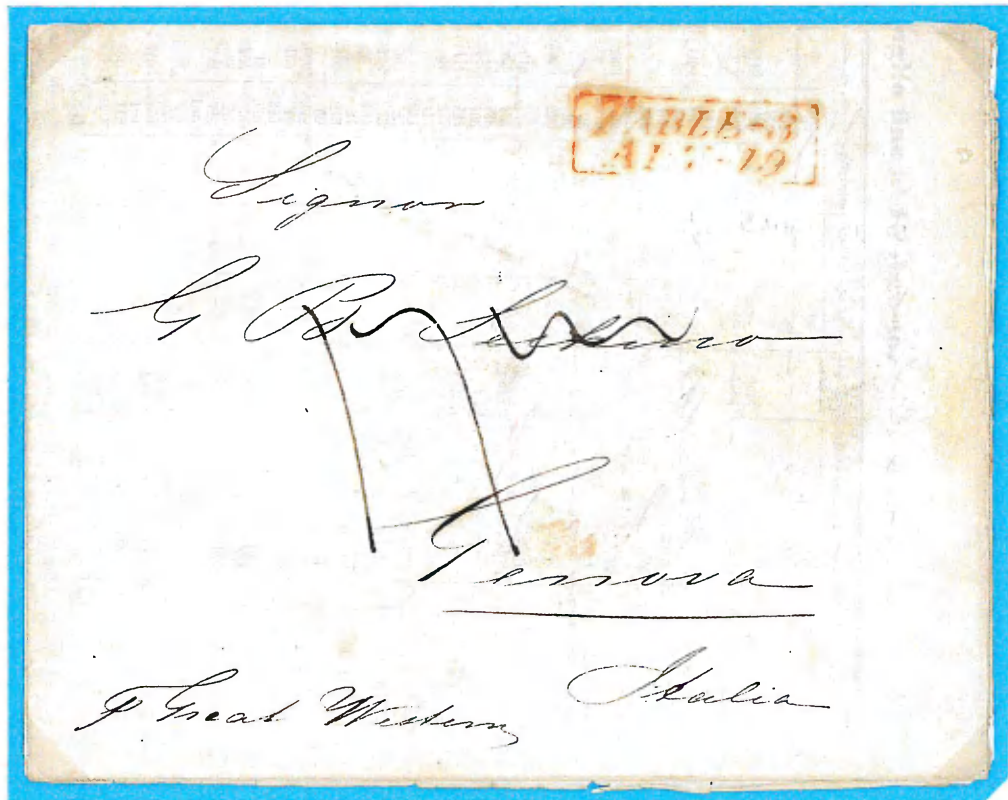 TABLE-3
Signor
G B
Genova
Italia
P Great Western